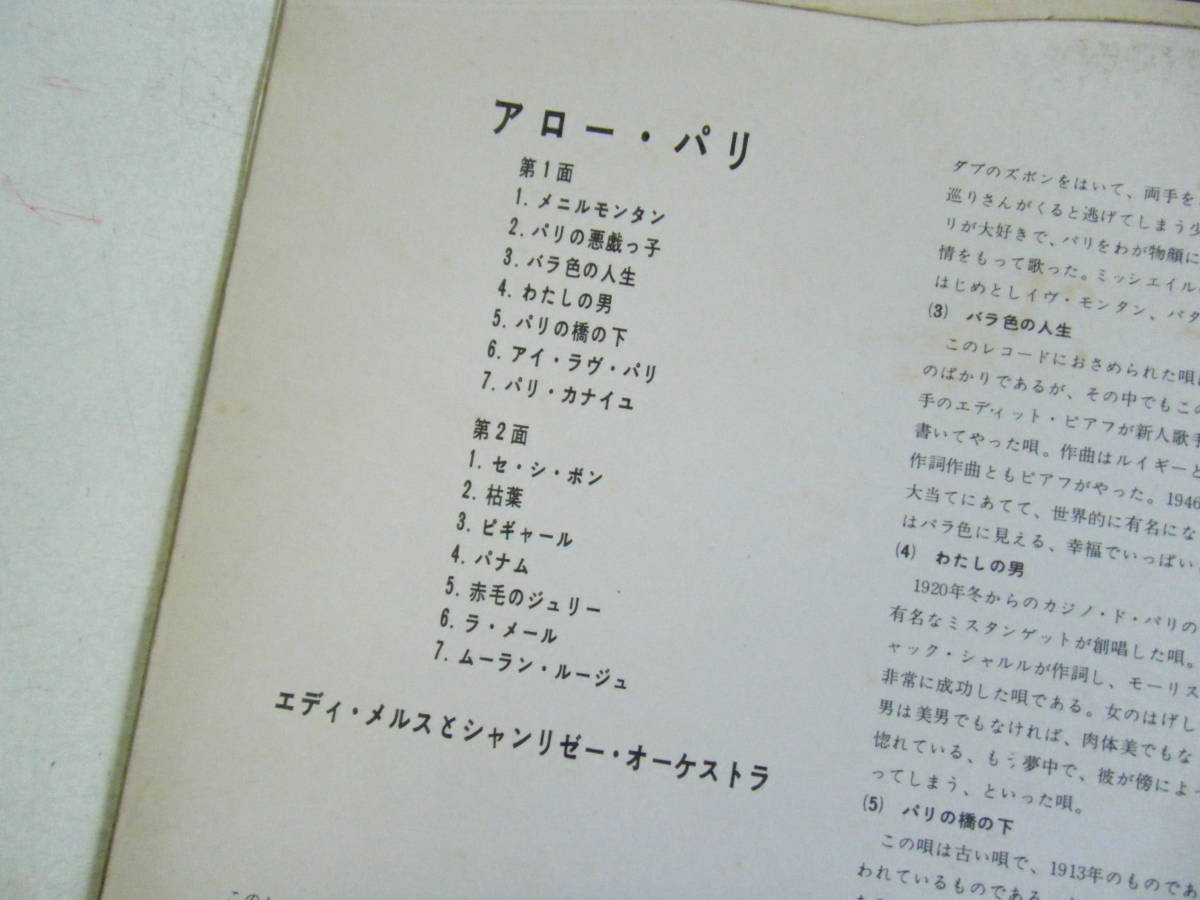 アロー・パリ
第1面
1. メニルモンタン
2. パリの悪戯っ子
3. バラ色の人生
4. わたしの男
5. パリの橋の下
6. アイ・ラヴ・パリ
7. パリ・カナイユ
第2面
1. セ・シ・ボン
2. 枯葉
3. ピギャール
4. パナム
5. 赤毛のジュリー
6. ラ・メール
7. ムーラン・ルージュ
エディ・メルスとシャンリゼー・オーケストラ
ダブのズボンをはいて、両手を
巡りさんがくると逃げてしまう少
リが大好きで、パリをわが物顔に
情をもって歌った。ミッシェイル
はじめとしイヴ・モンタン、パタ
(3) バラ色の人生
このレコードにおさめられた唄
のばかりであるが、その中でもこの
手のエディット・ピアフが新人歌手
書いてやった唄。作曲はルイギーと
作詞作曲ともピアフがやった。1946
大当てにあてて、世界的に有名にな
はバラ色に見える、幸福でいっぱい
(4) わたしの男
1920年冬からのカジノ・ド・パリの
有名なミスタンゲットが創唱した唄。
ャック・シャルルが作詞し、モーリス
非常に成功した唄である。女のはげし
男は美男でもなければ、肉体美でもな
惚れている、もう夢中で、彼が傍によっ
ってしまう、といった唄。
(5) パリの橋の下
この唄は古い唄で、1913年のものであ
われているものである。